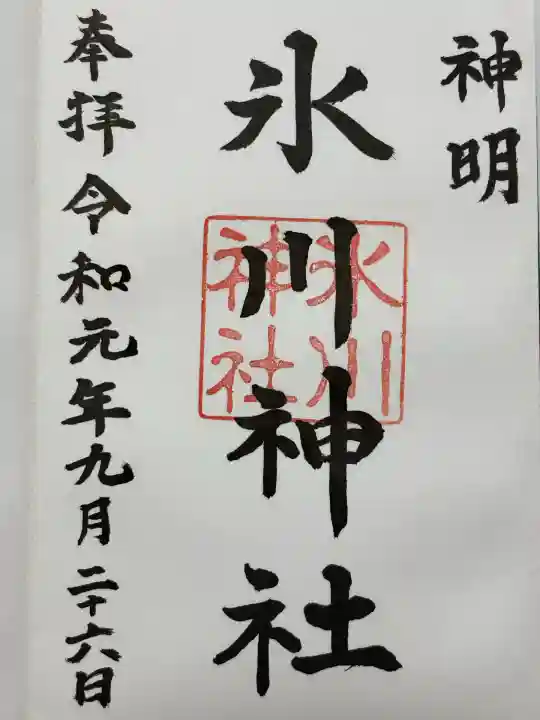 神明
氷川神社
氷川
神社
奉拝令和元年九月二十六日